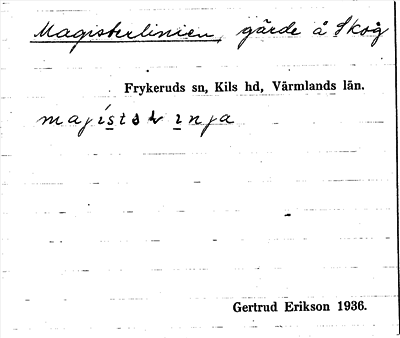 Magisterlinien, gärde å Skog
Frykeruds sn, Kils hd, Värmlands län.
Gertrud Erikson 1936.